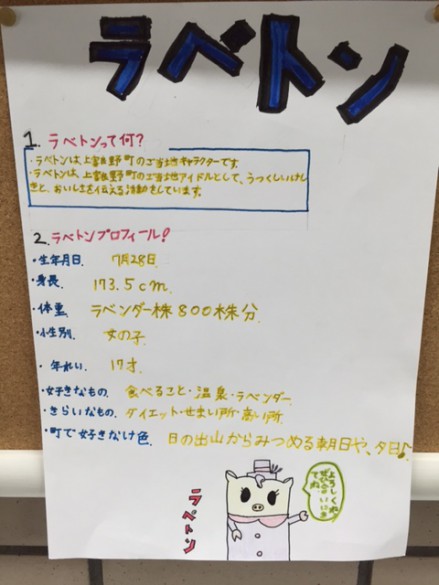 ラベトン
1. ラベトンって何?
・ラベトンは、上富良野町のご当地キャラクターです。
・ラベトンは、上富良野町のご当地アイドルとして、うつくしいけし
きと、おいしさを伝える活動をしています。
2. ラベトンプロフィール!
・生年月日 7月28日
・身長 173.5cm
・体重 ラベンダー株800株分
・性別 女の子
・年れい 17才
・好きなもの 食べること・温泉・ラベンダー
・きらいなもの ダイエット・せまい所・高い所
・町で好きなけ色 日の出山からみつめる朝日や、夕日♪
よろしくね
ラベトン